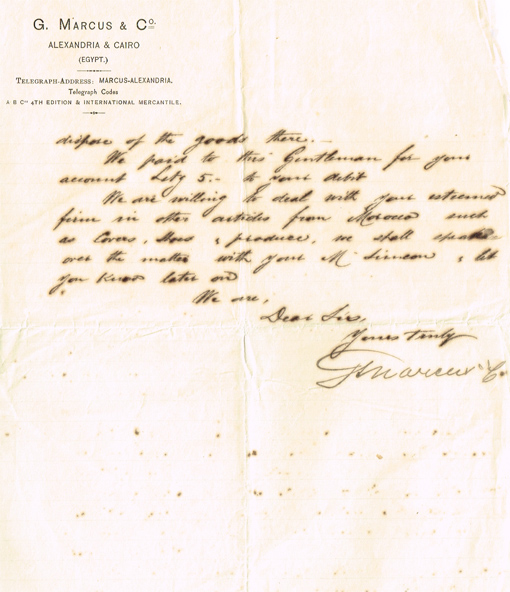 G. MARCUS & Co.
ALEXANDRIA & CAIRO
(EGYPT.)
TELEGRAPH-ADDRESS: MARCUS-ALEXANDRIA.
Telegraph Codes
A B Co 4TH EDITION & INTERNATIONAL MERCANTILE.
dispose of the goods there. -
We paid to this Gentleman for your
account 5.- to your debit
We are willing to deal with your esteemed
firm in other articles from Morocco such
as Covers, & produce, we shall speak
over the matter with your Mr Simeon & let
you know later on
We are,
Dear Sirs,
Yours truly
G Marcus & Co